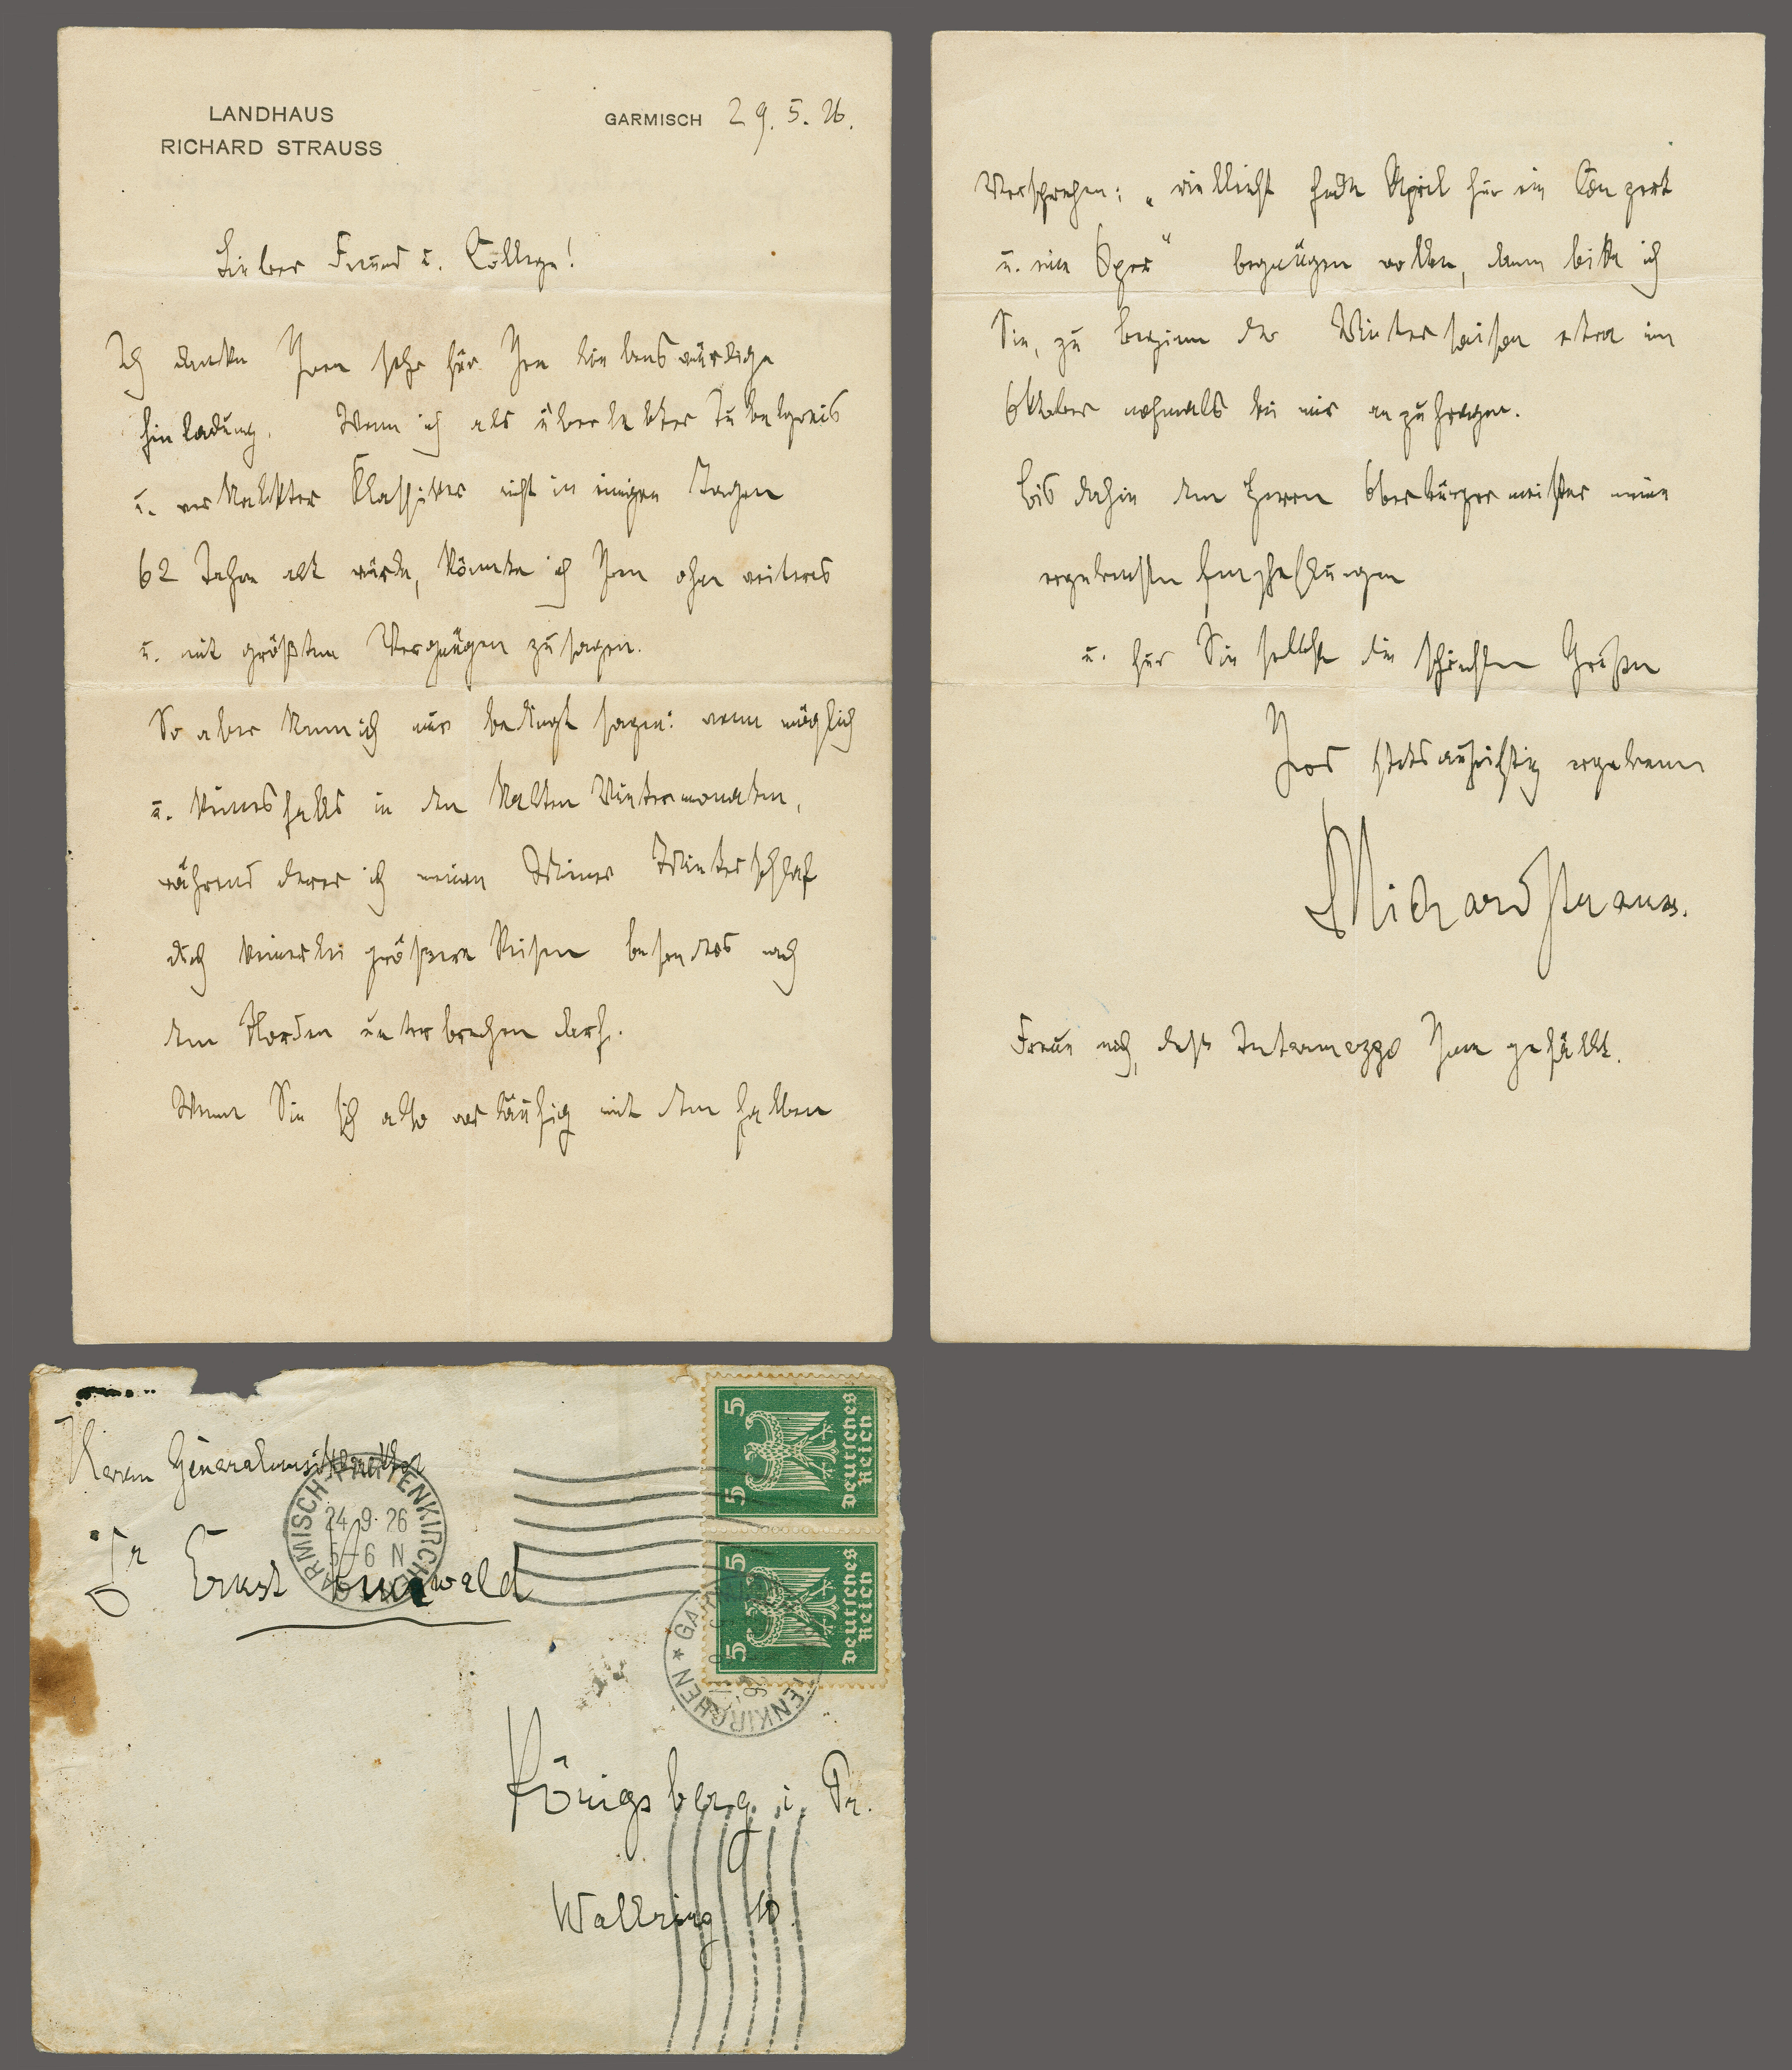 LANDHAUS
RICHARD STRAUSS
GARMISCH 29. 5. 26.
Lieber Freund u. College!
Ich danke Ihnen sehr für Ihre liebenswürdige
Einladung. Wenn ich als überlebter Jubelgreis
u. verkalkter Klassiker nicht in einigen Tagen
62 Jahre alt würde, könnte ich Ihnen ohne weiteres
u. mit größtem Vergnügen zusagen.
So aber kann ich nur bedingt sagen: wenn möglich
u. keinesfalls in den kalten Wintermonaten,
während derer ich meinen Wiener Winterschlaf
durch keinerlei größere Reisen besonders nach
dem Norden unterbrechen darf.
Wenn Sie sich also vorläufig mit dem halben
Versprechen: „vielleicht Ende April für ein Conzert
u. eine Oper“ begnügen wollen, dann bitte ich
Sie, zu Beginn der Wintersaison etwa im
Oktober nochmals bei mir anzufragen.
Bis dahin dem Herrn Oberbürgermeister meine
ergebensten Empfehlungen
u. für Sie selbst die schönsten Grüße
Ihres stets aufrichtig ergebenen
Richard Strauss.
Freue mich, dass Intermezzo Ihnen gefällt.
Herrn Generalmusikdirektor
Dr Ernst Kunwald
Königsberg i. Pr.
Wallring 10.
GARMISCH-PARTENKIRCHEN
24.9.26
5-6 N
5 5
Deutsches
Reich
5 5
Deutsches
Reich
GARMISCH-PARTENKIRCHEN